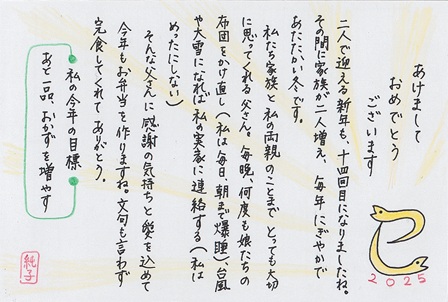 あけまして
おめでとう
ございます
巳
2025
二人で迎える新年も、十四回目になりましたね。
その間に家族が二人増え、毎年にぎやかで
あたたかい冬です。
私たち家族と私の両親のことまでとっても大切
に思ってくれる父さん。毎晩、何度も娘たちの
布団をかけ直し(私は毎日、朝まで爆睡)、台風
や大雪になれば私の実家に連絡する(私は
めったにしない)
そんな父さんに感謝の気持ちと愛を込めて
今年もお弁当を作りますね。文句も言わず
完食してくれてありがとう。
私の今年の目標
あと一品、おかずを増やす
純子